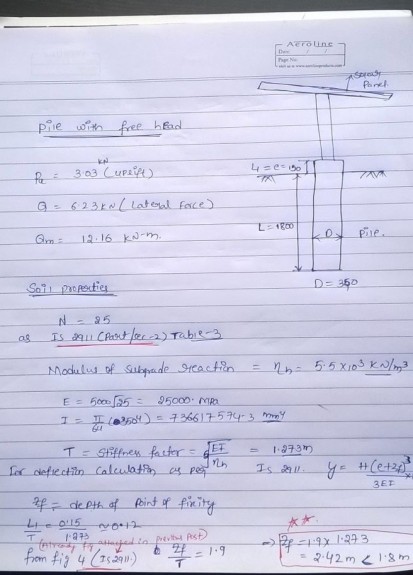 Aeroline
Date
Page No.
Solar Panel
Pile with free head
Pu = 3.03 kN (uplift)
L1 = e = 150
Q = 6.23 kN (Lateral Force)
L = 1800
D
Pile.
Qm = 12.16 kN-m.
D = 350
Soil properties
N = 25
as IS 2911 (Part/sec-2) Table-3
Modulus of subgrade reaction = ηh = 5.5 x 10³ kN/m³
E = 5000√25 = 25000. MPa
I = π/64 (350⁴) = 736617574.3 mm⁴
T = Stiffness factor = ⁵√EI/ηh = 1.273m
For deflection calculation as per IS 2911. y = H(e+zf)³/3EI
zf = depth of point of fixity
L1/T = 0.15/1.273 ≈ 0.12
(Already fig attached in previous post)
from fig 4 (IS 2911. zf/T = 1.9
⇒ zf = 1.9 x 1.273
= 2.42m < 1.8m